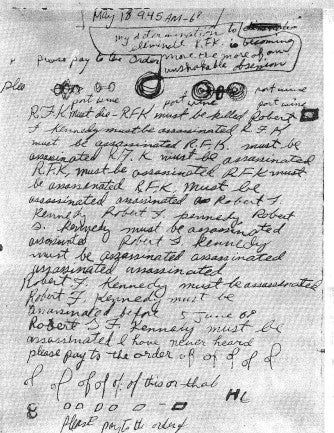 May 18 9.45 AM-68
my determination to
eliminate R.F.K. is becoming
more the more of an
unshakable obsession
please pay to the order
port wine port wine port wine
port wine
R.F.K. must die - RFK must be killed Robert
F. Kennedy must be assassinated R.F.K.
must be assassinated R.F.K. must be
assassinated R.F.K. must be assassinated
R.F.K. must be assassinated R.F.K. must
be assassinated R.F.K. must be
assassinated assassinated Robert F.
Kennedy Robert F. Kennedy Robert
F. Kennedy must be assassinated
assassinated Robert F. Kennedy
must be assassinated assassinated
assassinated assassinated
Robert F. Kennedy must be assassinated
Robert F. Kennedy must be
assassinated before 5 June 68
Robert F. Kennedy must be
assassinated I have never heard
please pay to the order of of of of of
of of of of of this or that
8
please pay to the order of